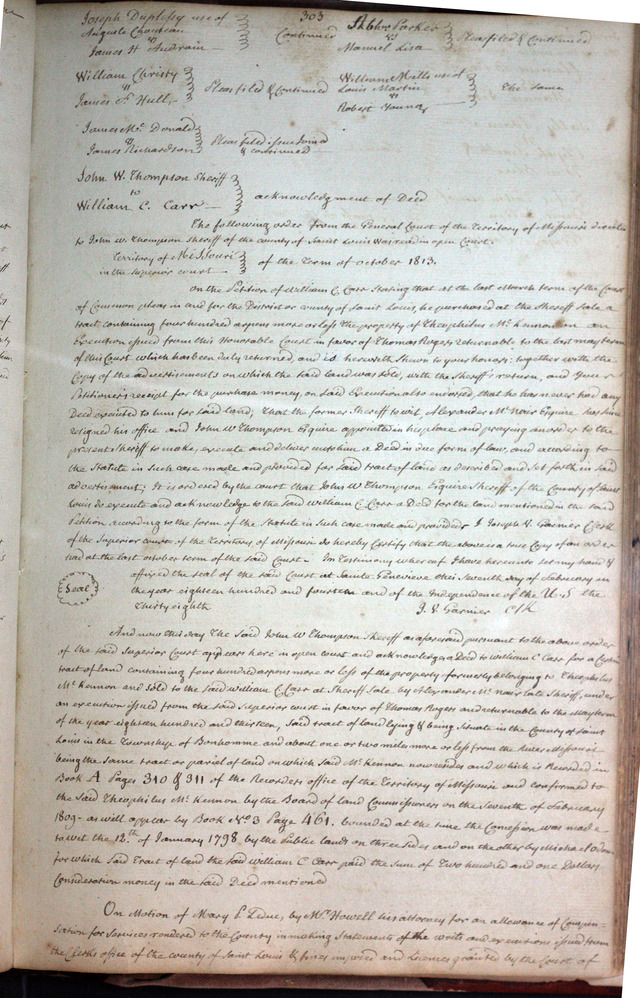 303
Joseph Duplessy use of
Auguste Chouteau
vs
James H Audrain
Continued
Parker
vs
Manuel Lisa
Pleas filed & Continued
William Christy
vs
James F Hull
Pleas filed & Continued
William Mills use of
Louis Martin
vs
Robert Young
The same
James Mc Donald
vs
James Richardson
Pleas filed issue Joined
& continued
John W. Thompson Sheriff
to
William C. Carr
acknowledgment of Deed
The following order from the General Court of the Territory of Missouri directed
to John W. Thompson Sheriff of the county of Saint Louis was read in open Court.
Territory of Missouri
in the Superior court
of the Term of october 1813.
On the Petition of William C. Carr Stating that at the last March term of the Court
of Common pleas in and for the District or County of Saint Louis, he purchased at the Sheriff Sale a
tract containing four hundred arpens more or less the property of Theophilus Mc Kennon on an
Execution issued from this Honorable Court in favor of Thomas Rogers returnable to the last may term
of this Court which has been duly returned, and is herewith Shewn to your honors: together with the
Copy of the advertisements on which the said land was sold, with the Sheriff's return, and your
Petitioners receipt for the purchase money, on said Execution also endorsed, that he has never had any
Deed executed to him for said land; That the former Sheriff to wit, Alexander Mc Nair Esquire has since
resigned his office and John W Thompson Esquire appointed in his place and praying an order to the
present Sheriff to make, execute and deliver unto him a Deed in due form of law, and according to
the Statute in such case made and provided for said tract of land as described and set forth in said
advertisement; It is ordered by the court that John W Thompson Esquire Sheriff of the County of Saint
Louis do execute and acknowledge to the said William C. Carr a Deed for the land mentioned in the said
Petition according to the form of the Statute in such case made and provided I Joseph V. Garnier Clerk
of the Superior court of the Territory of Missouri do hereby Certify that the above is a true Copy of an order
had at the last october term of the said Court. In Testimony whereof I have hereunto set my hand &
affixed the seal of the said Court at Sainte Genevieve this Seventh day of February in
Seal
the year eighteen hundred and fourteen and of the Independence of the U.S the
Thirty eighth
J. V. Garnier Clk
And now this day The Said John W Thompson Sheriff as aforesaid pursuant to the above order
of the said Superior Court appears here in open court and acknowledges a Deed to William C Carr for a Certain
tract of land containing four hundred arpens more or less of the property formerly belonging to Theophilus
Mc Kennon and sold to the said William C. Carr at Sheriff Sale by Alexander Mc nair late Sheriff, under
an execution issued from the said Superior court in favor of Thomas Rogers and returnable to the May term
of the year eighteen hundred and thirteen, Said tract of land lying & being Situate in the County of Saint
Louis in the Township of Bonhomme and about one or two miles more or less from the River Missouri
being the same tract or parcel of land on which Said Mc Kennon now resides and which is Recorded in
Book A Pages 310 & 311 of the Recorders office of the Territory of Missouri and confirmed to
the Said Theophilus Mc Kennon by the Board of land Commissioners on the Seventh of February
1809 - as will appear by Book No 3 Page 461. bounded at the time the Concession was made
to wit the 12th of January 1798 by the Public lands on three sides and on the other by Michael
for which Said Tract of land the said William C Carr paid the Sum of Two hundred and one Dollars
Consideration money in the said Deed mentioned
On Motion of Mary P. Leduc, by Mr Howell his attorney for an allowance of Compen-
sation for Services rendered to the County in making Statements of the writs and executions issued from
the Clerks office of the county of Saint Louis & fines imposed and Licences granted by the Court of